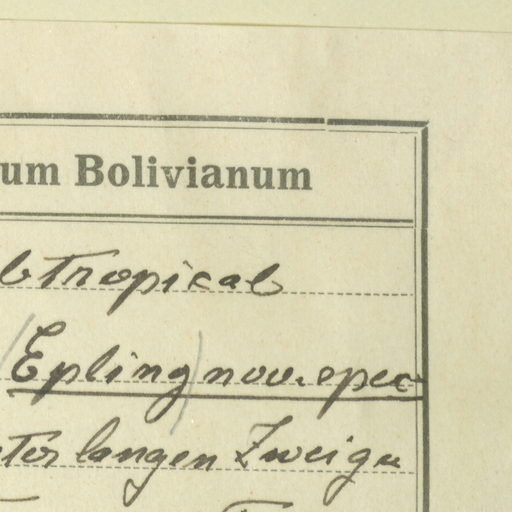 um Bolivianum
btropical
(Epling) nov. spec
langen Zweigen